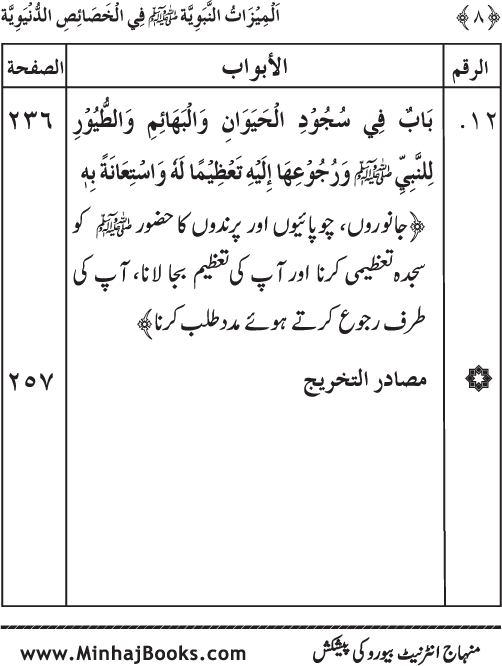 ﴿٨﴾ اَلْمِيْزَاتُ النَّبَوِيَّة ﷺ فِي الْخَصَائِصِ الدُّنْيَوِيَّة
الرقم الأبواب الصفحة
١٢. بَابٌ فِي سُجُوْدِ الْحَيَوَانِ وَالْبَهَائِمِ وَالطُّيُوْرِ ٢٣٦
لِلنَّبِيِّ ﷺ وَرُجُوْعِهَا إِلَيْهِ تَعْظِيْمًا لَهُ وَاسْتِعَانَةً بِهِ
﴿جانوروں، چوپائیوں اور پرندوں کا حضور ﷺ کو
سجدہ تعظیمی کرنا اور آپ کی تعظیم بجا لانا، آپ کی
طرف رجوع کرتے ہوئے مدد طلب کرنا﴾
۞ مصادر التخريج ٢٥٧
منہاج انٹرنیٹ بیورو کی پیشکش www.MinhajBooks.com